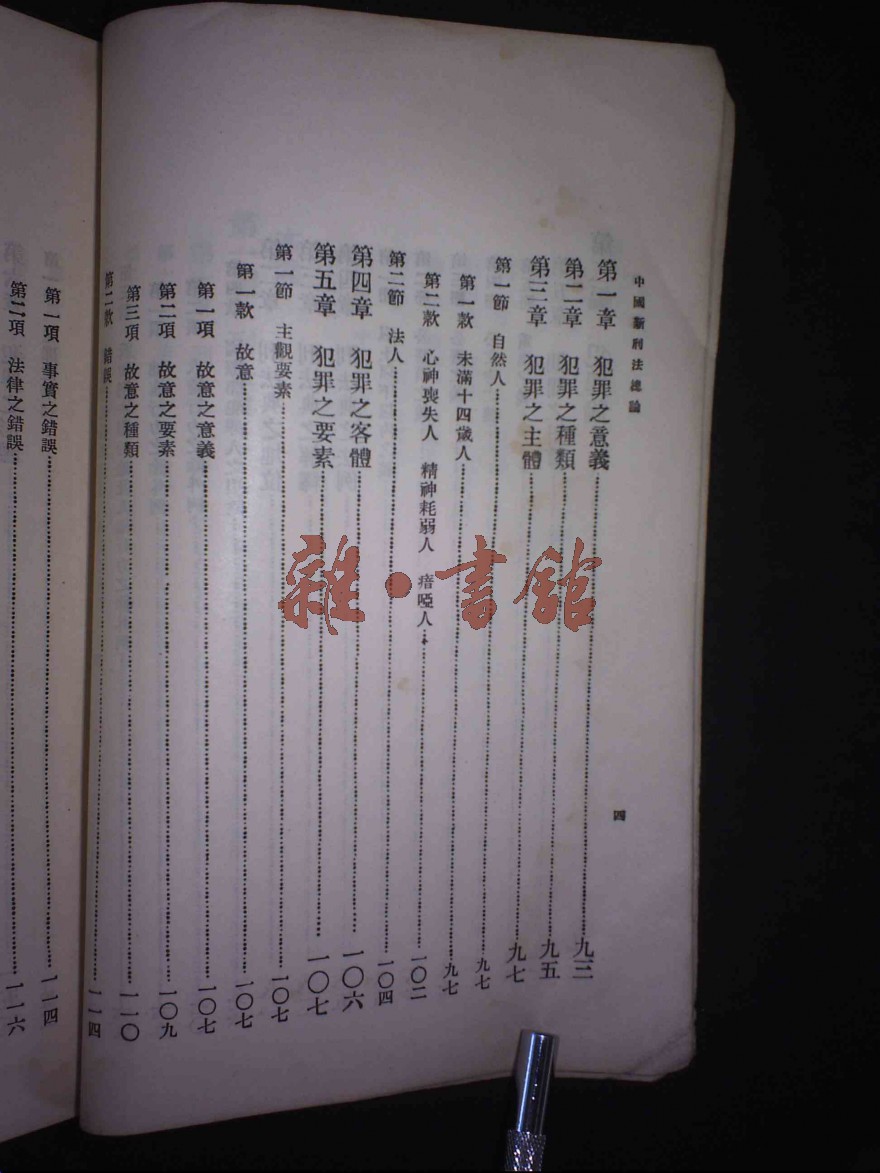 中國新刑法總論
四
第一章 犯罪之意義……九三
第二章 犯罪之種類……九五
第三章 犯罪之主體……九七
第一節 自然人……九七
第一款 未滿十四歲人……九七
第二款 心神喪失人 精神耗弱人 瘖啞人……一〇二
第二節 法人……一〇四
第四章 犯罪之客體……一〇六
第五章 犯罪之要素……一〇七
第一節 主觀要素……一〇七
第一款 故意……一〇七
第一項 故意之意義……一〇七
第二項 故意之要素……一〇九
第三項 故意之種類……一一〇
第二款 錯誤……一一四
第一項 事實之錯誤……一一四
第二項 法律之錯誤……一一六
雜·書館